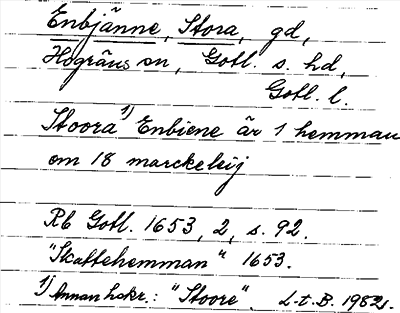 Enbjänne, Stora, gd,
Hogräns sn, Gotl. s. hd,
Gotl. l.
Stoora 1) Enbiene är 1 hemman
om 18 marckeleij
Rb Gotl. 1653, 2, s. 92.
"Skattehemman" 1653.
1) Annan hskr.: "Stoore". L-t.B. 1982